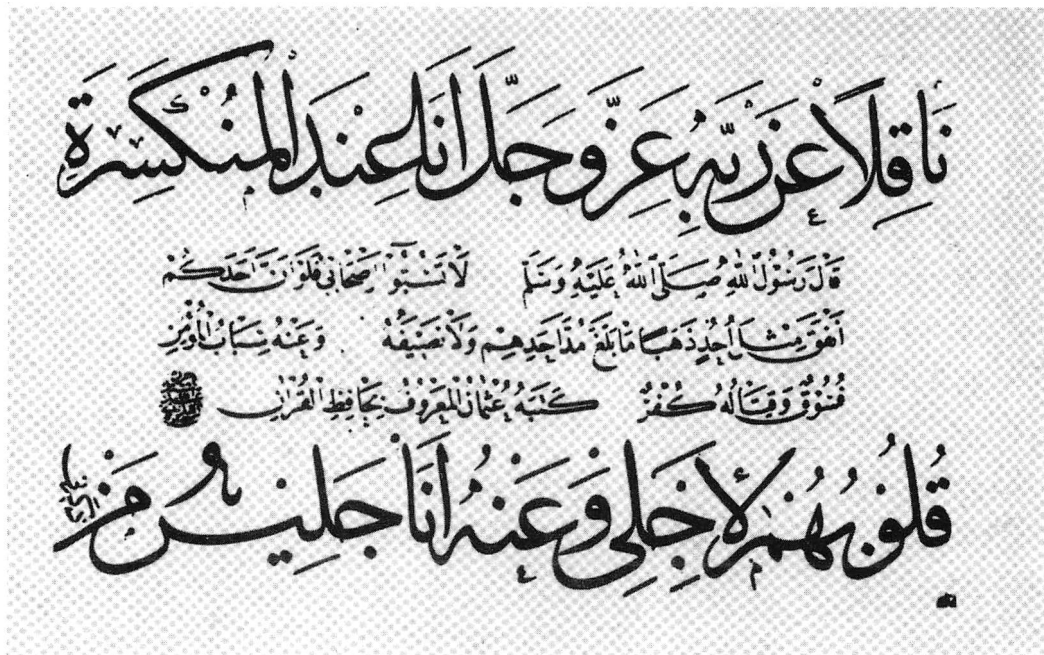 نَاقِلًا عَنْ رَبِّهِ عَزَّ وَجَلَّ اَنَا عِنْدَ الْمُنْكَسِرَةِ
قَالَ رَسُولُ اللهِ صَلَّى اللهُ عَلَيْهِ وَسَلَّمَ لَا تَسُبُّوا اَصْحَابِي فَلَوْ اَنَّ اَحَدَكُمْ
اَنْفَقَ مِثْلَ اُحُدٍ ذَهَبًا مَا بَلَغَ مُدَّ اَحَدِهِمْ وَلَا نَصِيفَهُ وَعَنْهُ سِبَابُ الْمُؤْمِنِ
فُسُوقٌ وَقِتَالُهُ كُفْرٌ كَتَبَهُ عُثْمَانُ الْمَعْرُوفُ بِحَافِظِ الْقُرْاٰنِ
قُلُوبُهُمْ لِأَجْلِي وَعَنْهُ اَنَا جَلِيسُ مَنْ